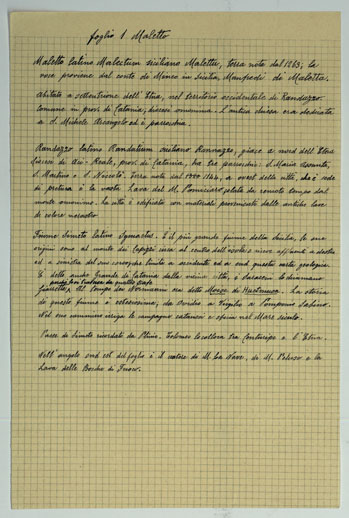 foglio 1 Maletto
Maletto latino Maletum siciliano Malettu, terra nota dal 1263; la
voce proviene dal conte di Mineo in Sicilia Manfredi di Maletta.
Abitato a settentrione dell'Etna, nel territorio occidentale di Randazzo
comune in prov. di Catania, diocesi omonima. L'antica chiesa era dedicata
a S. Michele Arcangelo ed è parrocchia.
Randazzo latino Randatium siciliano Rannazzu, giace a nord dell'Etna
diocesi di Aci-Reale, prov. di Catania, ha tre parrocchie: S. Maria Assunta,
S. Martino e S. Nicolò. Terra nota dal a ovest della città, che è sede
di pretura è la vasta Lava del M. colata da remoto tempo dal
monte omonimo. La città è edificata con materiali provenienti dalle antiche lave
di colore nerastro
Fiume Simeto latino Symaetus. È il più grande fiume della Sicilia, le sue
origini sono al monte dei nel centro dell'isola e riceve affluenti a destra
ed a sinistra del suo corso che limita a occidente ed a sud questa carta geologica.
È detto anche Grande di Catania dalla vicina città, i Saraceni lo chiamano
poi
Giarretta, Al tempo dei Normanni era detto di La storia
di questo fiume è da Ovidio a Virgilio a Pomponio Sabino.
Nel suo cammino irriga le campagne catanesi e sfocia nel Mare siculo.
Paese di limite ricordati da Plinio. tra Centuripe e l'Etna.
Nell'angolo sud est del foglio è il cratere di M. La Nave, di M. e la
Lava delle Bocche di Fuoco.